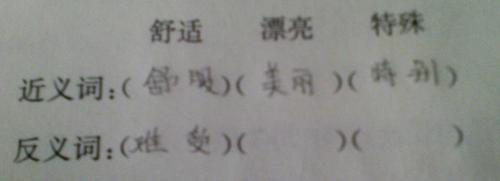 舒适 漂亮 特殊
近义词:(舒服)(美丽)(特别)
反义词:(难受)( )( )